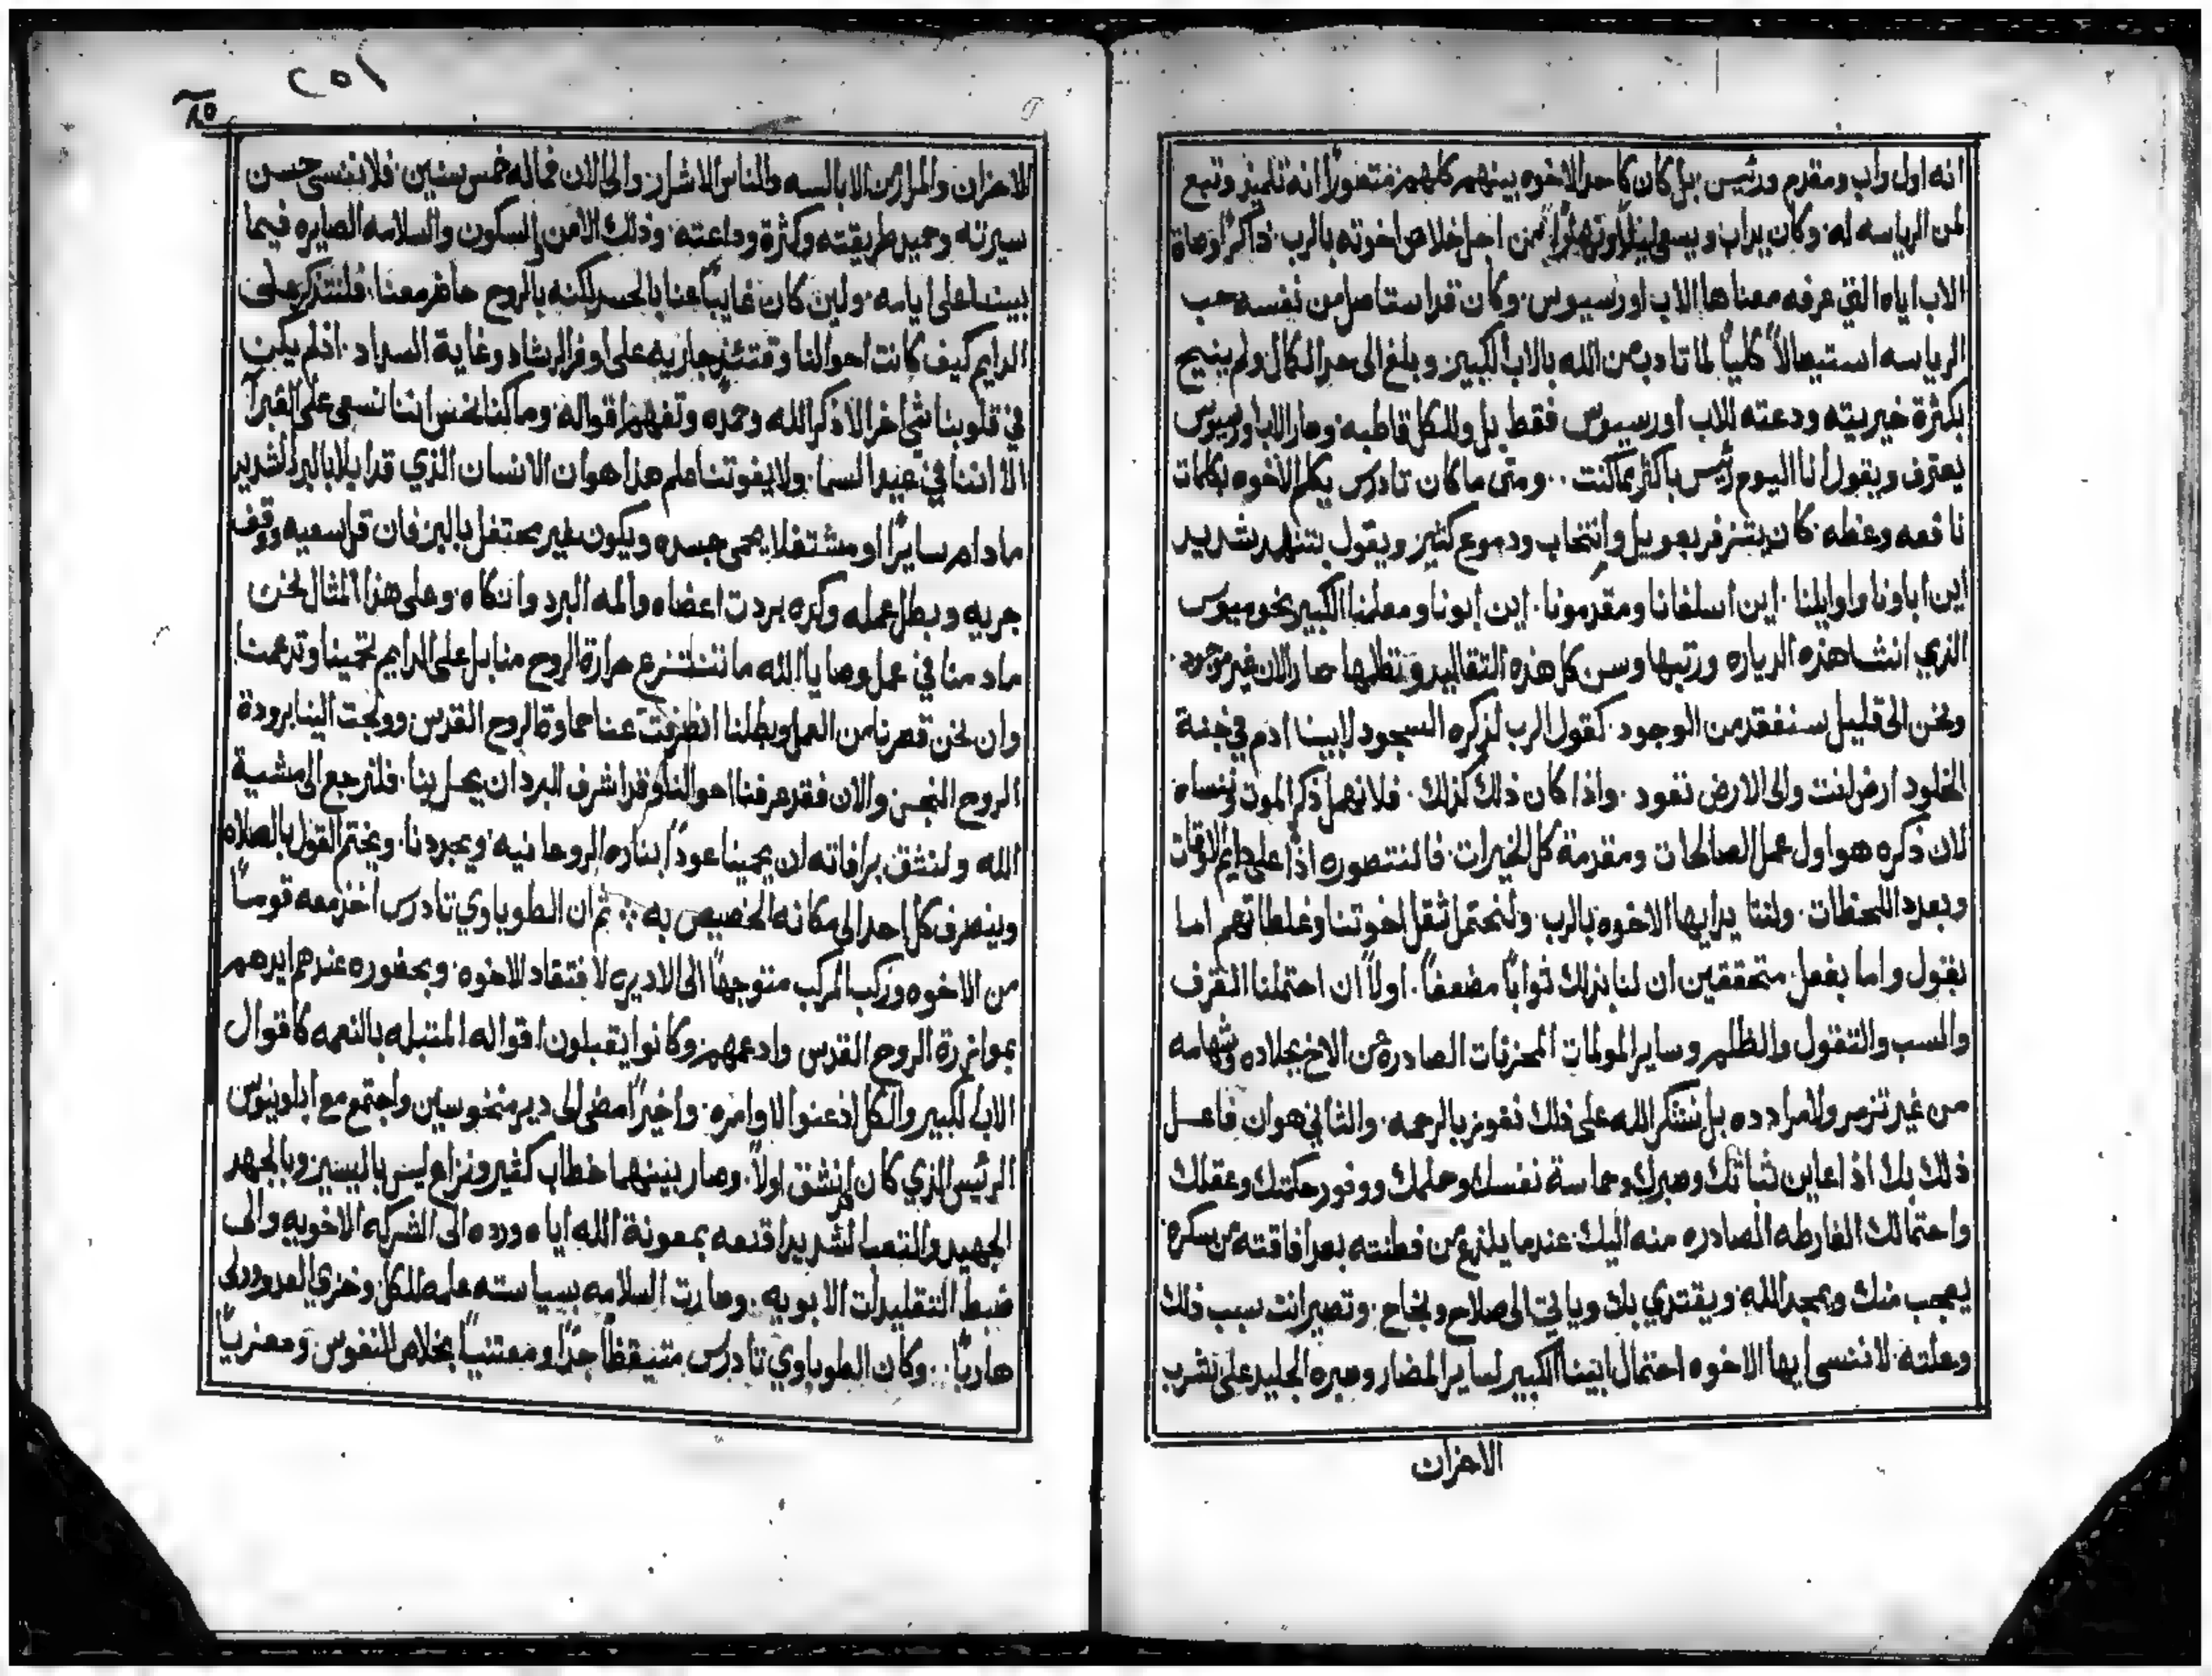 انه اول واب ومقدم ورئيس بل كان كاحد الاخوه بينهم كلهم متصورًا انه تلميذ وتبع
لمن الرياسه له وكان يداب ويسعى ليلًا ونهارًا من اجل خلاص اخوته بالرب ذاكرًا وصاة
الاب اياه التي عرفه معناها الاب اورسيوس وكان قد استاصل من نفسه حب
الرياسه استيصالاً كليًا لما تادب من الله بالاب الكبير وبلغ الى حد الكمال ولم ينيح
بكثرة خيريته ودعته للاب اورسيوس فقط بل وللكل قاطبه وصار الاب اورسيوس
يعترف ويقول انا اليوم رئيس باكثر مما كنت ومتى ما كان تادرس يكلم الاخوه بكلمات
نافعه وعظه كان يتزفر بعويل وانتحاب ودموع كثير ويقول بتنهد شديد
اين اباونا واوايلنا اين اسلفانا ومقدمونا اين ابونا ومعلمنا الكبير بخوميوس
الذي انشا هذه الدياره ورتبها وسن كل هذه التقاليد ونظلها صار الان غير موجود
ونحن الى قليل سنفقد من الوجود كقول الرب لذكره السجود لابينا ادم في جنة
الخلود ارض انت والى الارض تعود واذا كان ذلك كذلك فلا نهمل ذكر الموت وننساه
لان ذكره هو اول عمل الصالحات ومقدمة كل الخيرات فالنتصوره اذًا على دايم الاوقات
وبعدد اللحظات ولنتايد ايها الاخوه بالرب ولنحتمل ثقل اخوتنا وغلطاتهم اما
بقول واما بفعل متحققين ان لنا بذلك ثوابًا مضعفًا اولاً ان احتملنا القرف
والسب والتقول والظلم وساير المولمات المحزنات الصادره من الاخ بجلاده وشهامه
من غير تزمر ولا مرادده بل نشكر الله على ذلك نفوز بالرحمه والثاني هو ان فاعل
ذلك بك اذا عاين ثباتك وصبرك وحماسة نفسك وحلمك ووفور حكمتك وعقلك
واحتمالك الفارطه الصادره منه اليك عندما يلذع من فطنته بعد افاقته من سكره
يعجب منك ويمجد الله ويقتدي بك وياتي الى صلاح ونجاح وتصير انت سبب ذلك
وعلته لا ننسى ايها الاخوه احتمال ابينا الكبير لساير المضار وصبره الجليد على شرب
الاحزان
٢٥١
٨٥
الاحزان والمرار من الابالسه والناس الاشرار والى الان فماله خمس سنين فلا ننسى حسن
سيرته وحميد طريقته وكثرة وداعته وذلك الامن والسكون والسلامه الصايره فيما
بيننا على ايامه ولين كان غايبًا عنا بالجسد لكنه بالروح حاضر معنا فلنتذكر على
الدايم كيف كانت احوالنا وقتئذ جاريه على اوفر الرشاد وغاية السداد اذ لم يكن
في قلوبنا شي اخر الا ذكر الله وحمده وتفهم اقواله وما كنا نحس اننا نسعى على الغبرآ
الا اننا في عيد السما ولا يفوتنا علم هذا هو ان الانسان الذي قد ابلا بالبرد الشديد
ما دام سايرًا او مشتغلا يحمى جسده ويكون غير محتفل بالبرد فان قل سعيه ووقف
جريه وبطل عمله وكده بردت اعضاه والمه البرد وانكاه وعلى هذا المثال نحن
ما دمنا في عمل وصايا الله ما تنتزع حرارة الروح منا بل على الدايم تحمينا وتدعمنا
وان نحن قصرنا من العمل وبطلنا انطردت عنا حماوة الروح القدس وولجت الينا برودة
الروح النجس والان فقد عرفنا احوالنا وقد اشرف البرد ان يحل بنا فلنرجع الى مشية
الله ولنثق برافاته ان يحمينا عودًا بناره الروحانيه ويجددنا ويختم القول بالصلاه
وينصرف كل احد الى مكانه الخصيص به ثم ان الطوباوي تادرس اخذ معه قومًا
من الاخوه وركب المركب متوجهًا الى الاديره لافتقاد الاخوه وبحضوره عندهم ايدهم
بموازرة الروح القدس وادعمهم وكانوا يقبلون اقواله المتبله بالنعمه كاقوال
الاب الكبير والكل اذعنوا لاوامره واخيرًا مضى الى دير منخوسين واجتمع مع ابلونيوس
الرئيس الذي كان انشق اولاً وصار بينهما خطاب كثير ونزاع ليس باليسير وبالجهد
الجهيد والتعب الشديد اقنعه بمعونة الله اياه ورده الى الشركه الاخويه والى
ضبط التقليدات الابويه وصارت السلامه بسياسته عامه للكل وخزي العدو وولى
هاربًا وكان الطوباوي تادرس متيقظًا جدًا ومعتنيًا بخلاص النفوس ومعزيًا